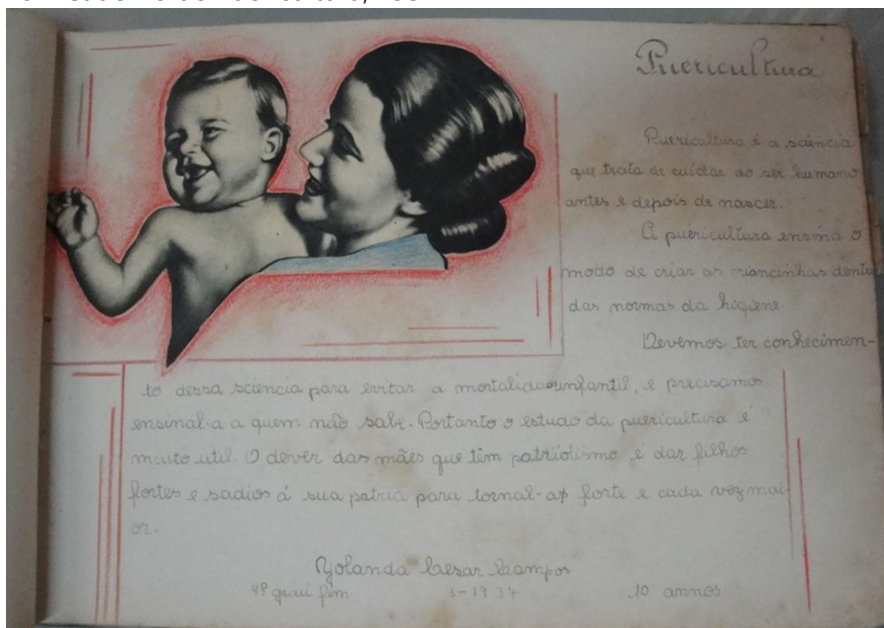 Puericultura
Puericultura é a sciencia
que trata de cuidar do ser humano
antes e depois de nascer.
A puericultura ensina o
modo de criar as criancinhas dentro
das normas da higiene
Devemos ter conhecimen-
to dessa sciencia para evitar a mortalidade infantil, e precisamos
ensinal-a a quem não sabe. Portanto o estudo da puericultura é
muito util. O dever das mães que têm patriotismo é dar filhos
fortes e sadios á sua patria para tornal-a forte e cada vez mai-
or.
Yolanda Cesar Campos
4º grau fem 3-1937 10 annos